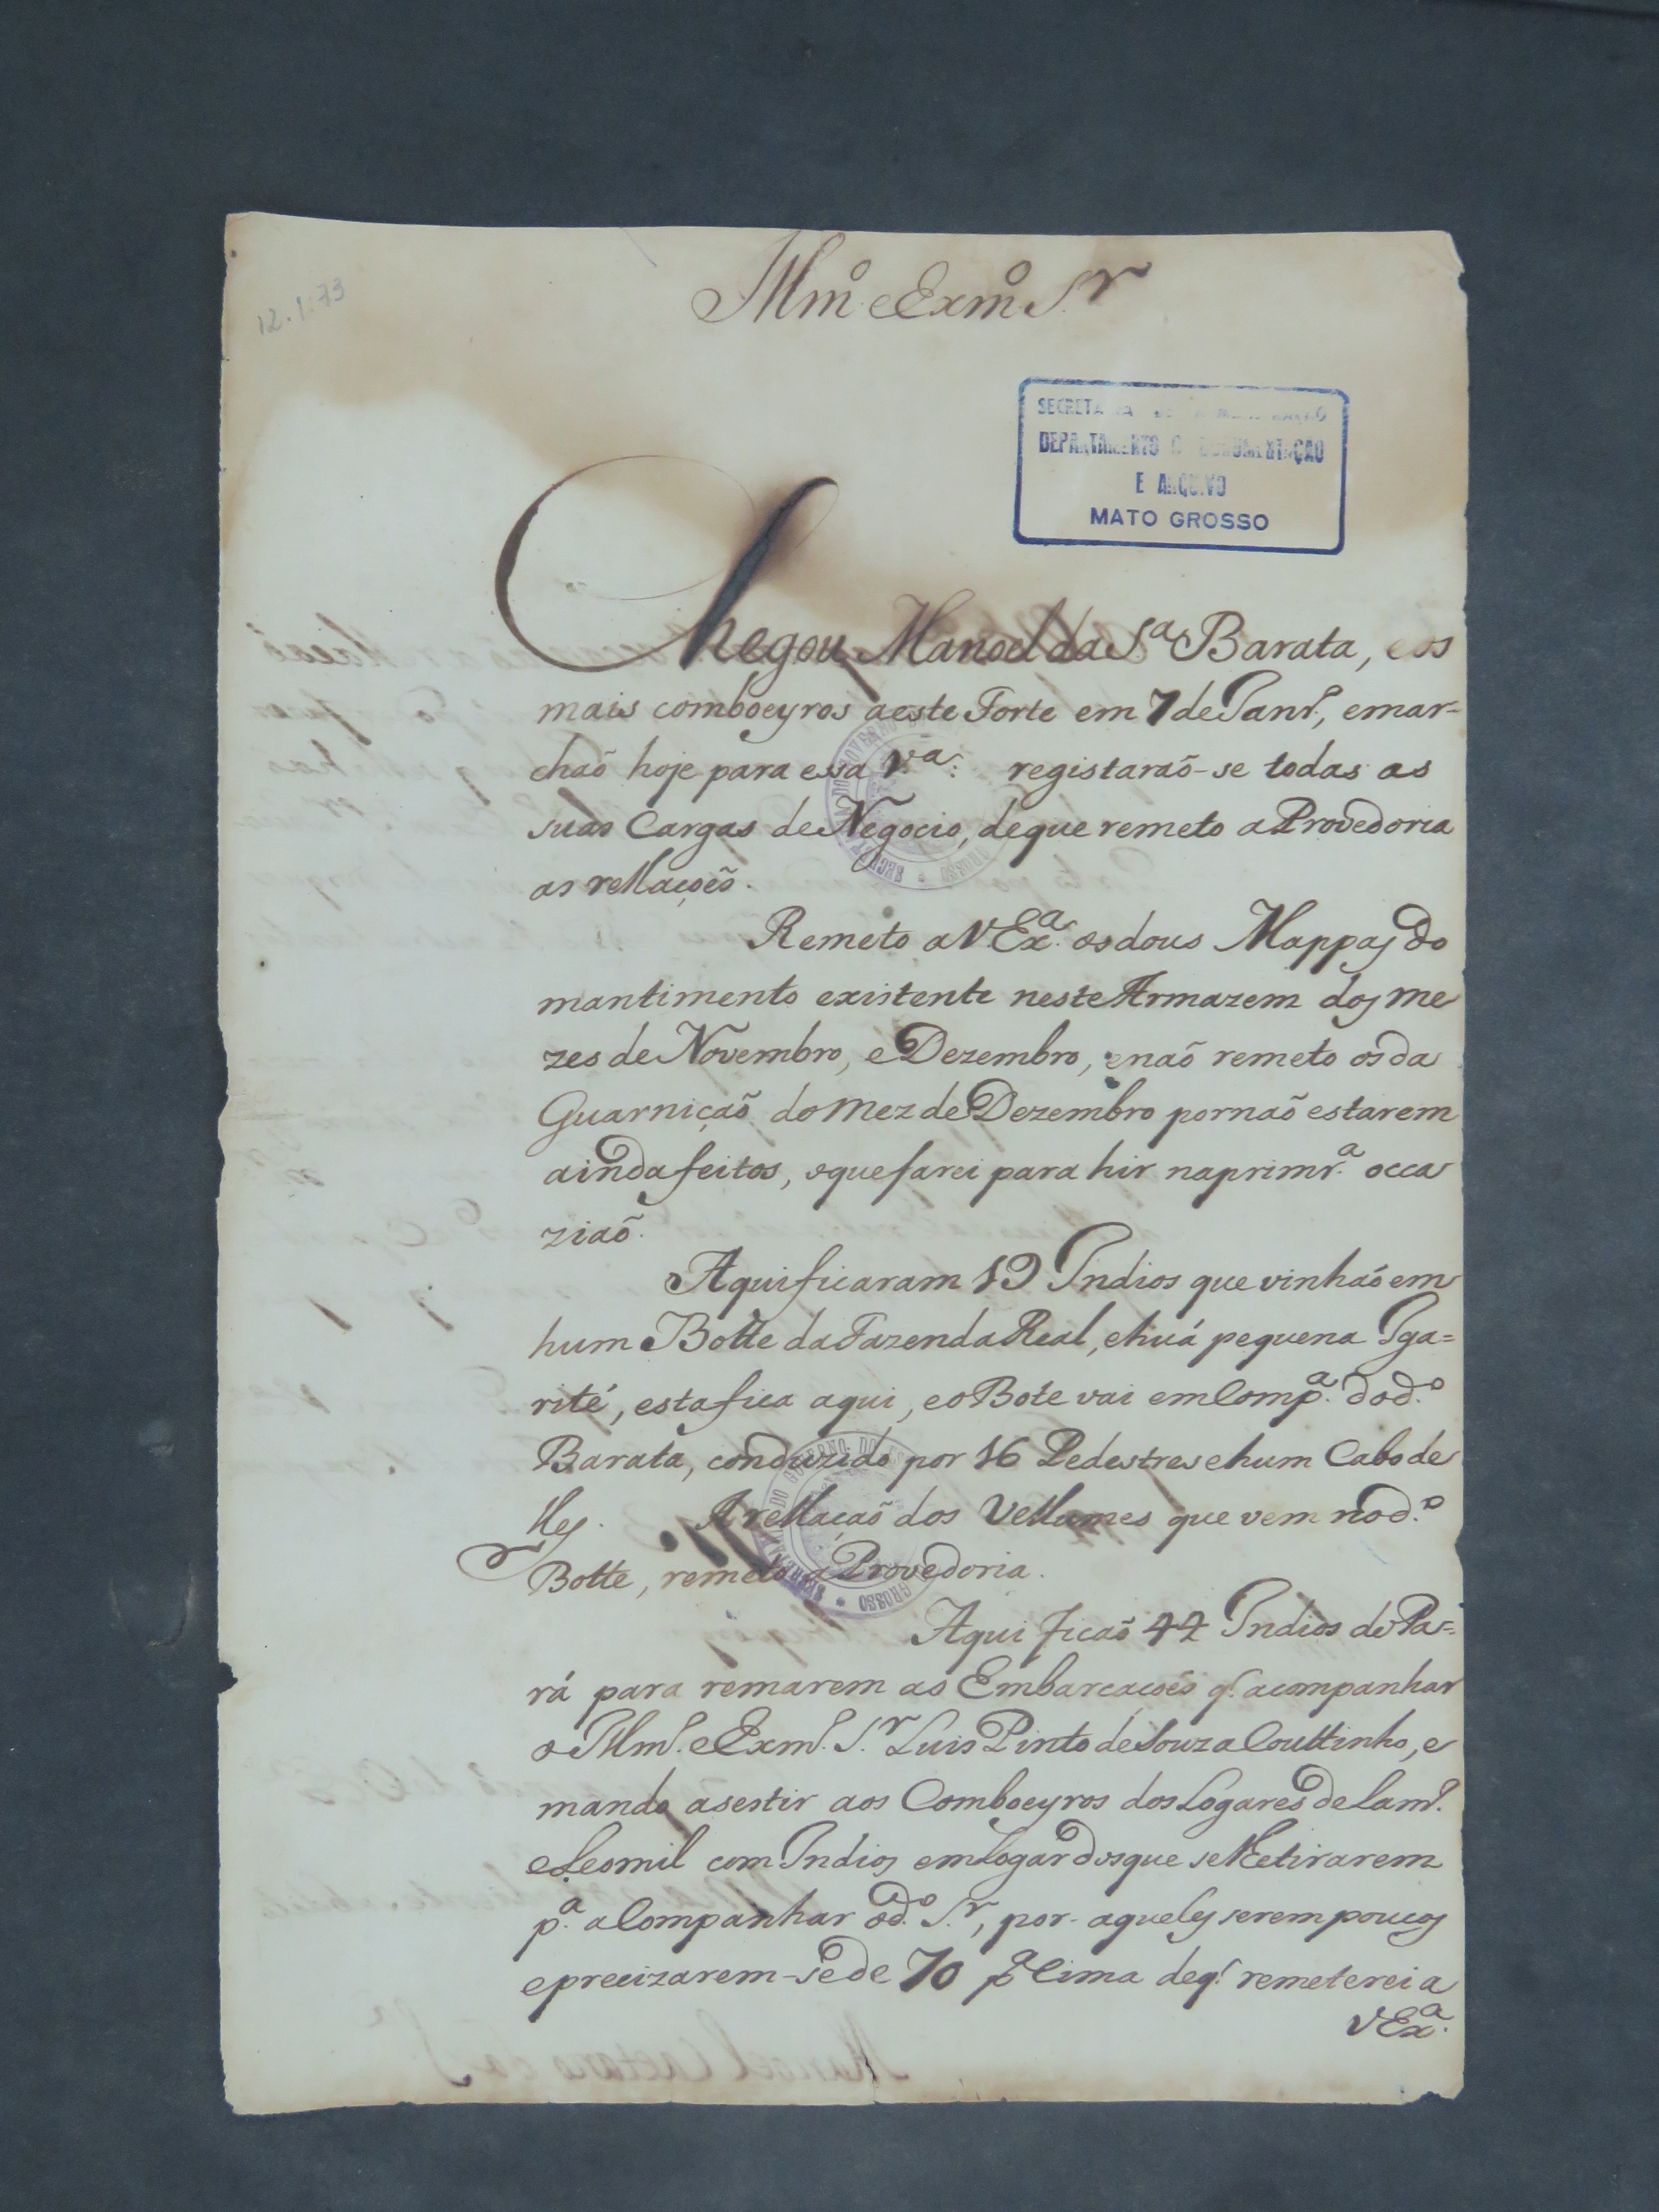 12.1.73
Illm.º e Exm.º S.r
SECRETARIA DE ADMINISTRAÇÃO
DEPARTAMENTO DE DOCUMENTAÇÃO
E ARQUIVO
MATO GROSSO
Chegou Manoel da S.ª Barata, e os
mais comboeyros aeste Forte em 7 de Janr.º, emar-
chaõ hoje para essa V.ª: registaraõ-se todas as
suas Cargas de Negocio, deque remeto a Provedoria
as rellaçoẽs.
Remeto a V Ex.ª os dous Mappas do
mantimento existente neste Armazem dos me
zes de Novembro, e Dezembro, enaõ remeto os da
Guarniçaõ do mez de Dezembro pornaõ estarem
ainda feitos, oque farei para hir naprimr.ª occa
ziaõ.
Aqui ficaram 19 Indios que vinhaõ em
hum Botte da Fazenda Real, ehuá pequena Iga=
rité, esta fica aqui, eo Bote vai em Comp.ª do d.º
Barata, conduzido por 16 Pedestres ehum Cabo de
lles. A rellaçaõ dos Vellames que vem no d.º
Botte, remeto a Provedoria.
Aqui ficaõ 44 Indios do Pa=
rá para remarem as Embarcaçoẽs q.' acompanhar
o Illm.º e Exm.º S.r Luis Pinto de Souza Couttinho, e
mando asestir aos Comboeyros dos Logares de Lam.º
e Leomil com Indios em Logar dos que se Retirarem
p.ª a Companhar o d.º S.r, por aqueles serem poucos
eprecizarem-se de 70 p.ª Cima deq.' remeterei a
V Ex.ª